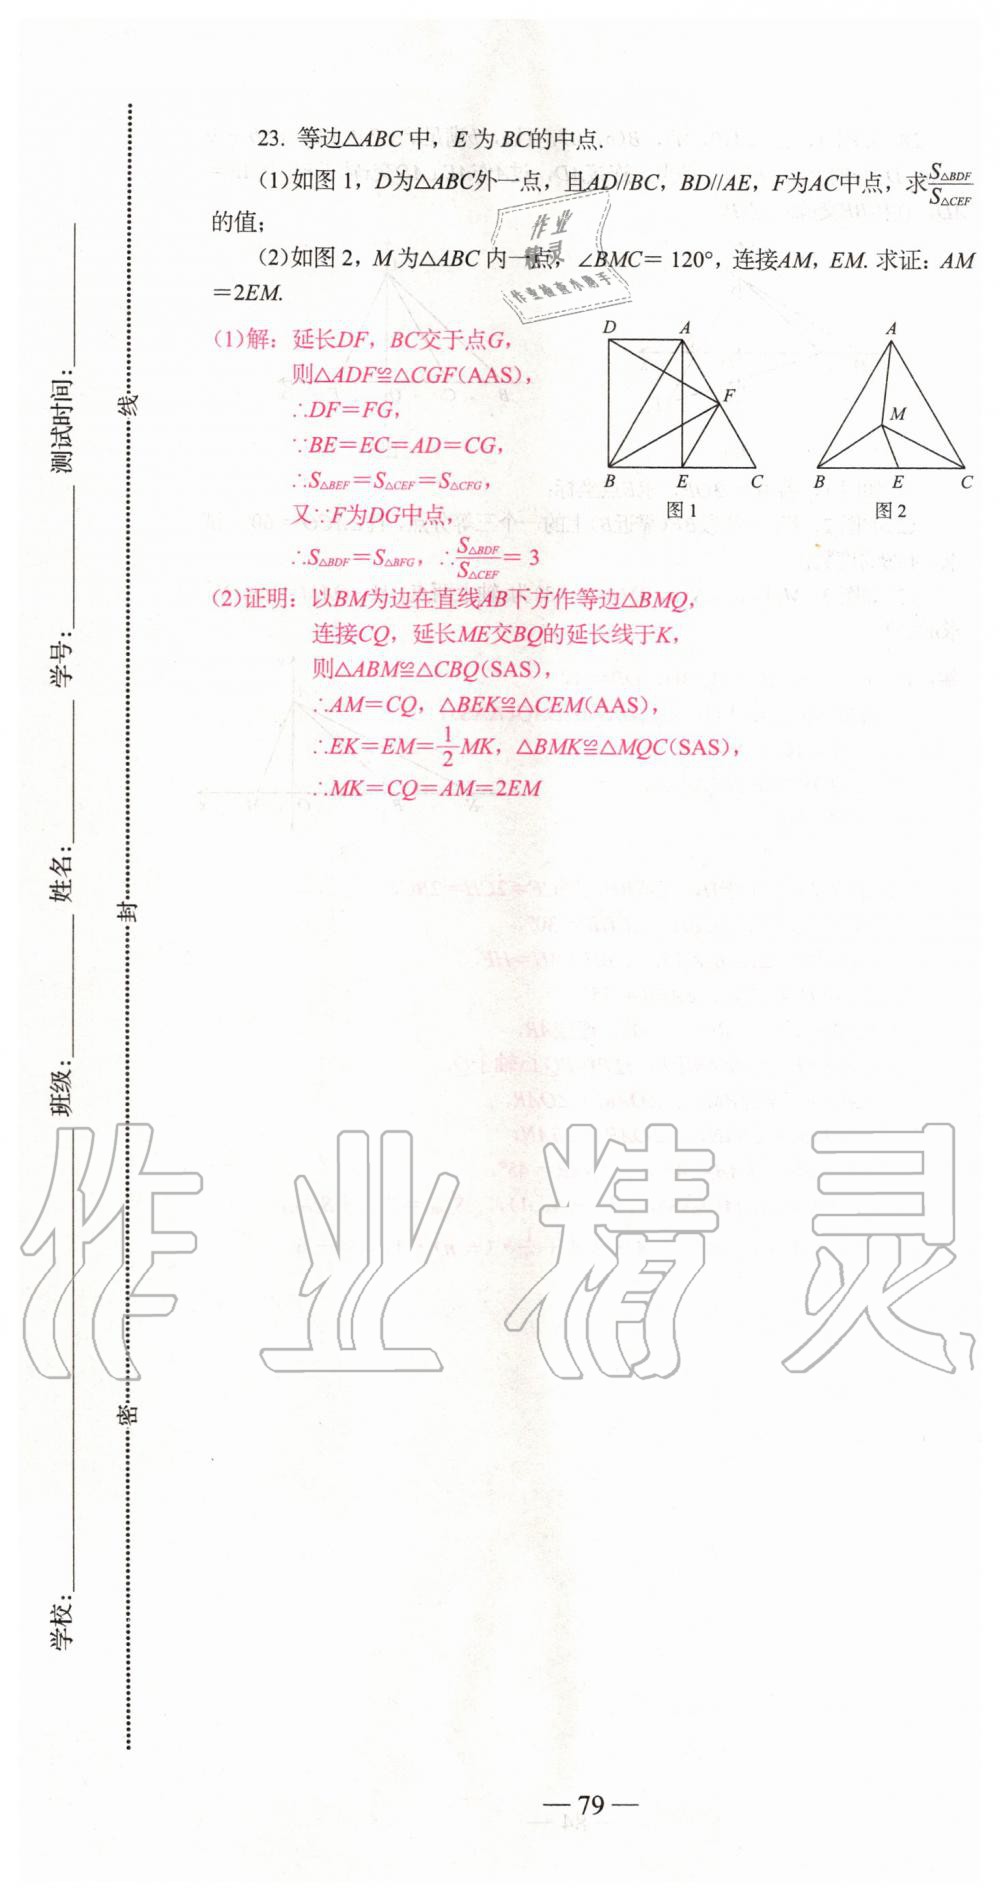 23. 等边△ABC 中，E 为 BC的中点.
(1)如图 1，D为△ABC外一点，且AD//BC，BD//AE，F为AC中点，求S△BDF/S△CEF
的值；
(2)如图 2，M 为△ABC 内一点，∠BMC= 120°，连接AM，EM. 求证：AM
=2EM.
作业
精灵
作业检查小助手
(1)解：延长DF，BC交于点G，
则△ADF≌△CGF(AAS)，
∴DF=FG，
∵BE=EC=AD=CG，
∴S△BEF=S△CEF=S△CFG，
又∵F为DG中点，
∴S△BDF=S△BFG，∴S△BDF/S△CEF= 3
D A F B E C
图 1
A M B E C
图 2
(2)证明：以BM为边在直线AB下方作等边△BMQ，
连接CQ，延长ME交BQ的延长线于K，
则△ABM≌△CBQ(SAS)，
∴AM=CQ，△BEK≌△CEM(AAS)，
∴EK=EM=1/2MK，△BMK≌△MQC(SAS)，
∴MK=CQ=AM=2EM
学校： 班级： 姓名： 学号： 测试时间：
密 封 线
作业精灵
— 79 —